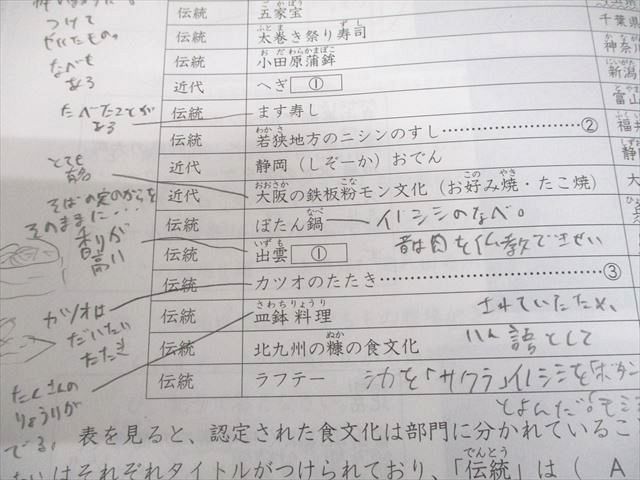 つけて
せいたもの。
なべも
ある
たべたことが
ある
とても
有名
そばの実のからを
そのままに・・・
香りが
高い
カツオは
だいたい
たたき
たくさんの
りょうりが
でる。
伝統 五家宝 千葉県
伝統 太巻き祭り寿司 神奈川
伝統 小田原蒲鉾 新潟
近代 へぎ ① 富山
伝統 ます寿し 福井
伝統 若狭地方のニシンのすし ②
近代 静岡（しぞーか）おでん
近代 大阪の鉄板粉モン文化（お好み焼・たこ焼） 大
伝統 ぼたん鍋 イノシシのなべ。
昔は肉を仏教で
伝統 出雲 ①
伝統 カツオのたたき ③
されていたため、
伝統 皿鉢料理
伝統 北九州の糠の食文化 いん語として
伝統 ラフテー シカを「サクラ」イノシシを「ボタン
とよんだ。
表を見ると、認定された食文化は部門に分かれているこ
はそれぞれタイトルがつけられており、「伝統」は（ A